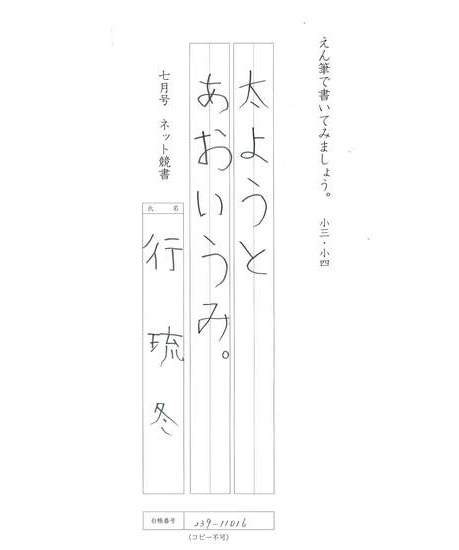 えん筆で書いてみましょう。 小三・小四
太ようと
あおいうみ。
七月号 ネット競書
氏名
行琉冬
台帳番号 239-11016
(コピー不可)